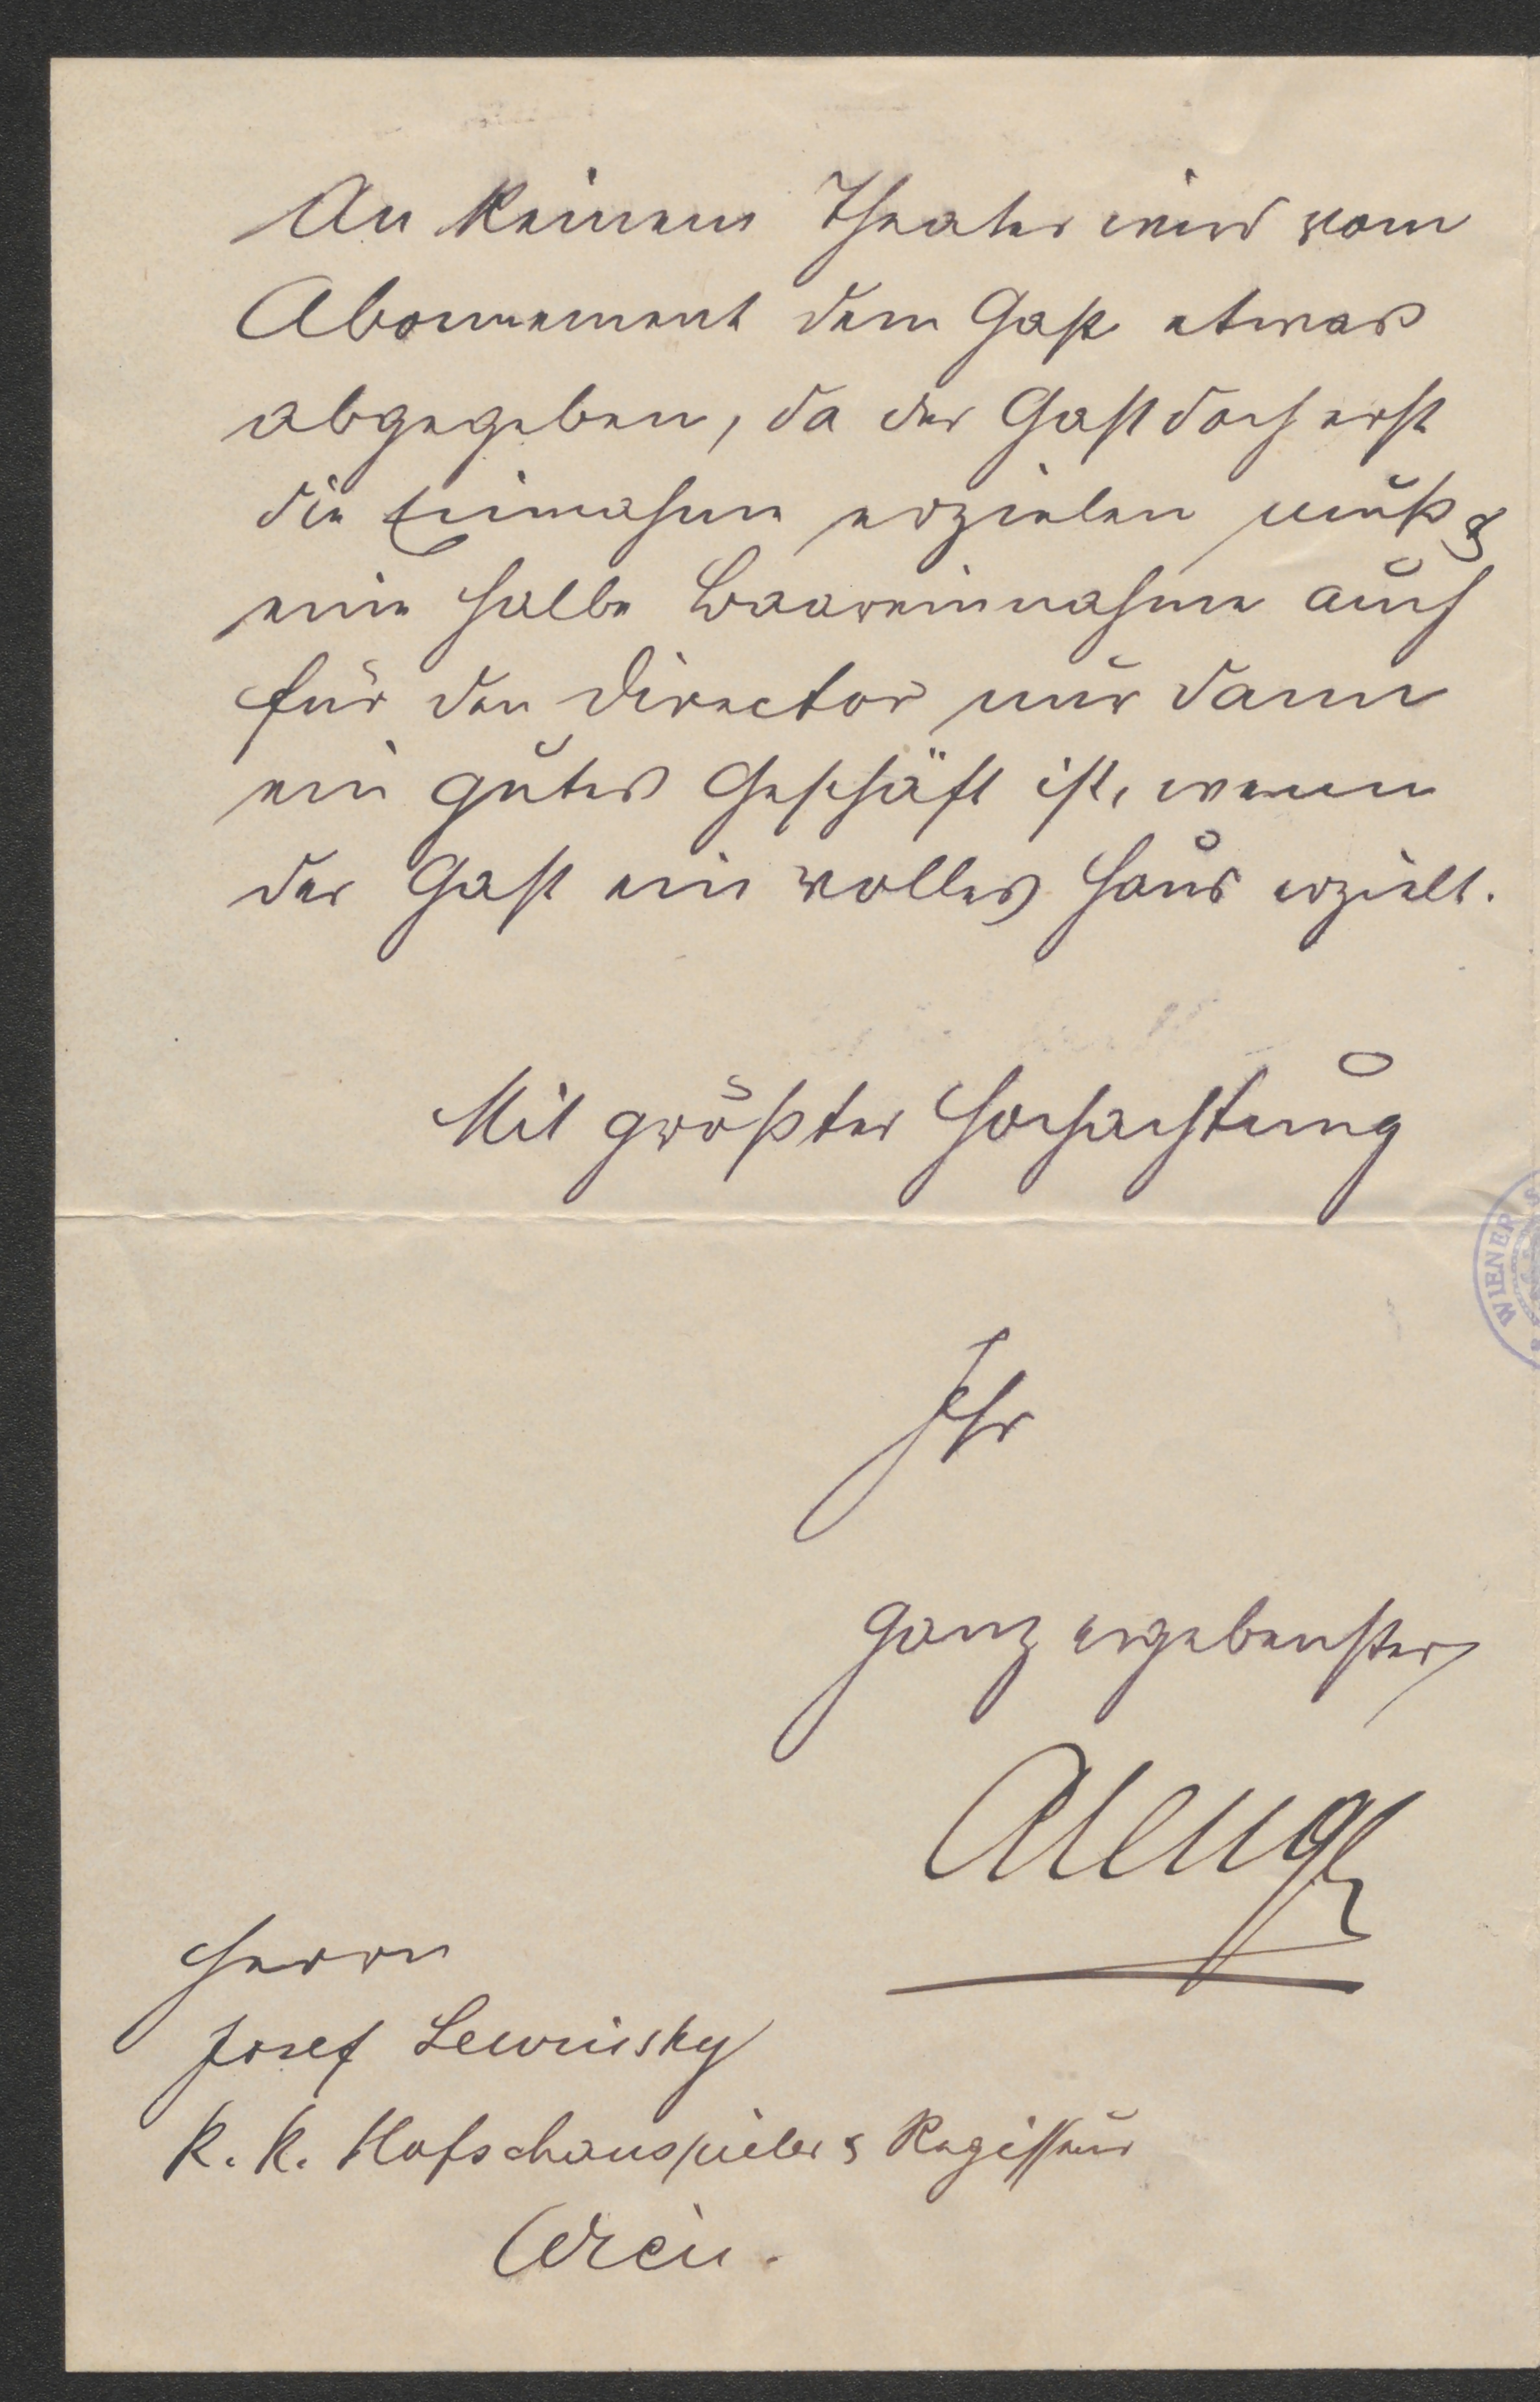 An keinem Theater wird vom
Abonnement dem Gast etwas
abgegeben, da der Gast doch erst
die Einnahme erzielen muß &
eine halbe Baareinnahme auch
für den Director nur dann
ein gutes Geschäft ist, wenn
der Gast ein volles Haus erzielt.
Mit größter Hochachtung
WIENER
Ihr
ganz ergebenster
Herrn
Josef Lewinsky
K. K. Hofschauspieler & Regisseur
Wien.